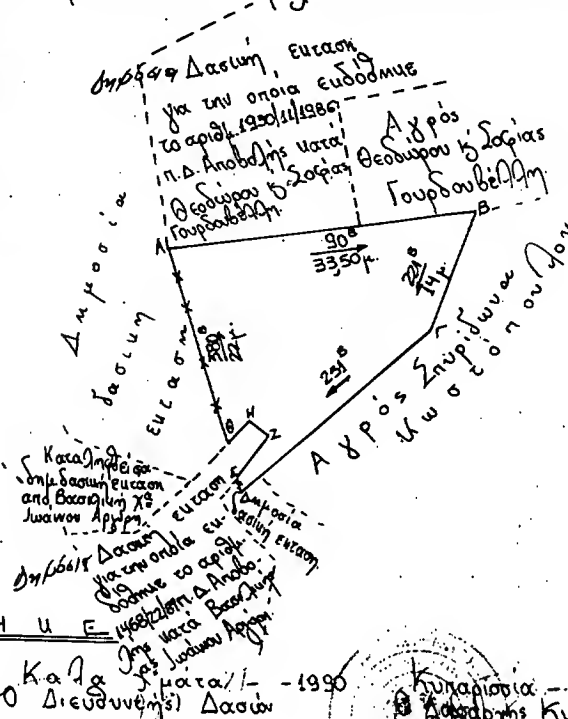 Δημόσια Δασική έκταση
για την οποία εκδόθηκε
το αριθμ. 1990/11/1986
π.Δ. Αποβολής κατά
Θεοδώρου & Σοφίας
Γουρδουβέλλη.
Αγρός
Θεοδώρου & Σοφίας
Γουρδουβέλλη.
Α
Β
90
33,50 μ.
221
14 μ.
Γ
231
Δημοσία
δασική
έκταση
22 μ.
Θ
Η
Ζ
Ε
Αγρός Σπυρίδωνα
Κωστόπουλου
Καταληφθείσα
δημ. δασική έκταση
από Βασιλική χα
Ιωάννου Αργύρη
Δημόσια
δασική έκταση
Δημόσια Δασική έκταση
για την οποία εκ-
δόθηκε το αριθμ.
π.Δ. Αποβο-
λής κατά Βασιλικής
χας Ιωάννου Αργύρη.
Η Κ Ε
Καλαμάτα / - -1990
Ο Διευθυντής Δασών
Κυπαρισσία --
Ο Δασάρχης Κυ